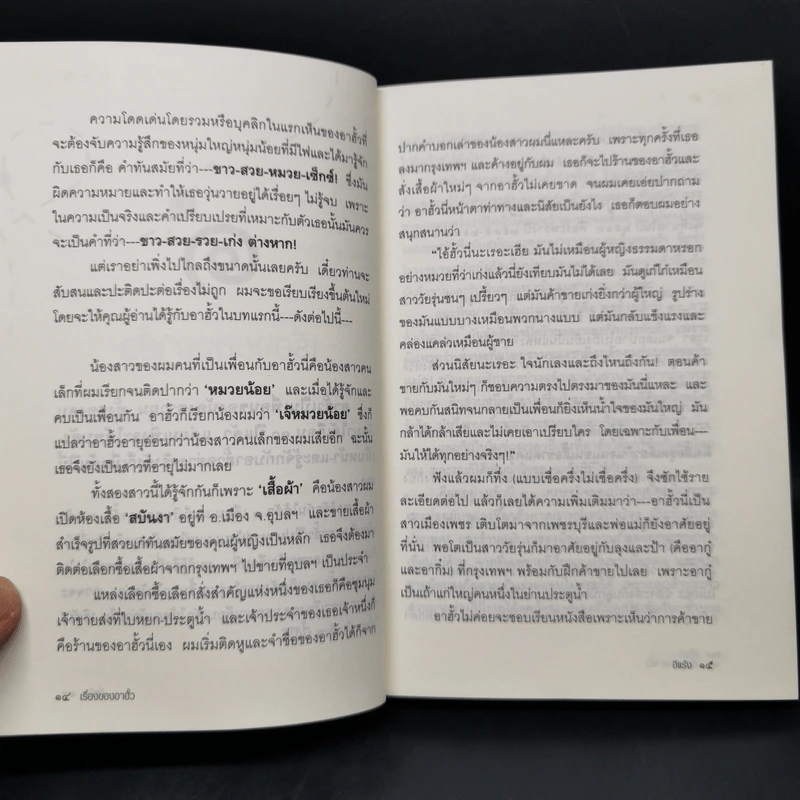 ความโดดเด่นโดยรวมหรือบุคลิกในแรกเห็นของอาฮั้วที่
จะต้องจับความรู้สึกของหนุ่มใหญ่หนุ่มน้อยที่มีไฟและได้มารู้จัก
กับเธอก็คือ คำทันสมัยที่ว่า---ขาว-สวย-หมวย-เซ็กซ์! ซึ่งมัน
ผิดความหมายและทำให้เธอวุ่นวายอยู่ได้เรื่อยๆ ไม่รู้จบ เพราะ
ในความเป็นจริงและคำเปรียบเปรยที่เหมาะกับตัวเธอนั้นมันควร
จะเป็นคำที่ว่า---ขาว-สวย-รวย-เก่ง ต่างหาก!
แต่เราอย่าเพิ่งไปไกลถึงขนาดนั้นเลยครับ เดี๋ยวท่านจะ
สับสนและปะติดปะต่อเรื่องไม่ถูก ผมจะขอเรียบเรียงขึ้นต้นใหม่
โดยจะให้คุณผู้อ่านได้รู้จักกับอาฮั้วในบทแรกนี้---ดังต่อไปนี้---
น้องสาวของผมคนที่เป็นเพื่อนกับอาฮั้วนี่คือน้องสาวคน
เล็กที่ผมเรียกจนติดปากว่า ‘หมวยน้อย’ และเมื่อได้รู้จักและ
คบเป็นเพื่อนกัน อาฮั้วก็เรียกน้องผมว่า ‘เจ๊หมวยน้อย’ ซึ่งก็
แปลว่าอาฮั้วอายุอ่อนกว่าน้องสาวคนเล็กของผมเสียอีก ฉะนั้น
เธอจึงยังเป็นสาวที่อายุไม่มากเลย
ทั้งสองสาวนี้ได้รู้จักกันก็เพราะ ‘เสื้อผ้า’ คือน้องสาวผม
เปิดห้องเสื้อ ‘สบันงา’ อยู่ที่ อ.เมือง จ.อุบลฯ และขายเสื้อผ้า
สำเร็จรูปที่สวยเก๋ทันสมัยของคุณผู้หญิงเป็นหลัก เธอจึงต้องมา
ติดต่อเลือกซื้อเสื้อผ้าจากกรุงเทพฯ ไปขายที่อุบลฯ เป็นประจำ
แหล่งเลือกซื้อเลือกสั่งสำคัญแห่งหนึ่งของเธอก็คือชุมนุม
เจ้าขายส่งที่ใบหยก-ประตูน้ำ และเจ้าประจำของเธอเจ้าหนึ่งก็
คือร้านของอาฮั้วนี่เอง ผมเริ่มติดหูและจำชื่อของอาฮั้วได้ก็จาก
๑๔ เรื่องของอาฮั้ว
ปากคำบอกเล่าของน้องสาวผมนี่แหละครับ เพราะทุกครั้งที่เธอ
ลงมากรุงเทพฯ และค้างอยู่กับผม เธอก็จะไปร้านของอาฮั้วและ
สั่งเสื้อผ้าใหม่ๆ จากอาฮั้วไม่เคยขาด จนผมเคยเอ่ยปากถาม
ว่า อาฮั้วนี่หน้าตาท่าทางและนิสัยเป็นยังไง เธอก็ตอบผมอย่าง
สนุกสนานว่า
“ไอ้ฮั้วนี่นะเรอะเฮีย มันไม่เหมือนผู้หญิงธรรมดาหรอก
อย่างหมวยที่ว่าเก่งแล้วนี่ยังเทียบมันไม่ได้เลย มันดูเก๋ไก๋เหมือน
สาววัยรุ่นซนๆ เปรี้ยวๆ แต่มันค้าขายเก่งยิ่งกว่าผู้ใหญ่ รูปร่าง
ของมันแบบบางเหมือนพวกนางแบบ แต่มันกลับแข็งแรงและ
คล่องแคล่วเหมือนผู้ชาย
ส่วนนิสัยนะเรอะ ใจนักเลงและถึงไหนถึงกัน! ตอนค้า
ขายกับมันใหม่ๆ ก็ชอบความตรงไปตรงมาของมันนี่แหละ และ
พอคบกันสนิทจนกลายเป็นเพื่อนก็ยิ่งเห็นน้ำใจของมันใหญ่ มัน
กล้าได้กล้าเสียและไม่เคยเอาเปรียบใคร โดยเฉพาะกับเพื่อน---
มันให้ได้ทุกอย่างจริงๆ!”
ฟังแล้วผมก็ทึ่ง (แบบเชื่อครึ่งไม่เชื่อครึ่ง) จึงซักไซ้ราย
ละเอียดต่อไป แล้วก็เลยได้ความเพิ่มเติมมาว่า---อาฮั้วนี่เป็น
สาวเมืองเพชร เติบโตมาจากเพชรบุรีและพ่อแม่ก็ยังอาศัยอยู่
ที่นั่น พอโตเป็นสาววัยรุ่นก็มาอาศัยอยู่กับลุงและป้า (คืออากู๋
และอากิ๋ม) ที่กรุงเทพฯ พร้อมกับฝึกค้าขายไปเลย เพราะอากู๋
เป็นเถ้าแก่ใหญ่คนหนึ่งในย่านประตูน้ำ
อาฮั้วไม่ค่อยจะชอบเรียนหนังสือเพราะเห็นว่าการค้าขาย
อีแร้ง ๑๕